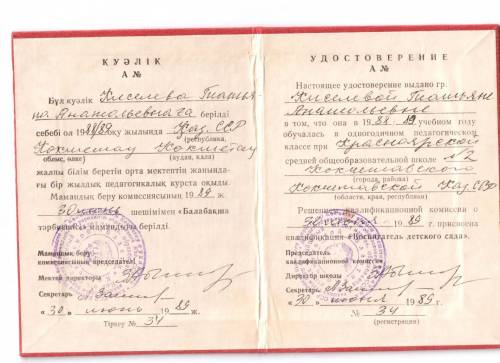 КУӘЛІК
А №
Бұл куәлік Киселева Татья-
на Анатольевнаға берілді
себебі ол 1988/89 оқу жылында Каз. ССР
(республика.
Кокшетау Кокшетау
облыс, өлке) (аудан, қала)
жалпы білім беретін орта мектептің жанында-
ғы бір жылдық педагогикалық курста оқыды.
Мамандық беру комиссиясының 1989 ж.
30 июнь шешімімен «Балабақша
тәрбияшы» мамандығы берілді
Мамандық беру
комиссиясының председателі
Мектеп директоры
Секретарь
«30» июнь 1989 ж.
Тіркеу № 34
УДОСТОВЕРЕНИЕ
А №
Настоящее удостоверение выдано гр.
Киселевой Татьяне
Анатольевне
в том, что она в 1988-89 учебном году
обучалась в одногодичном педагогическом
классе при Красноярской
средней общеобразовательной школе №2
Кокчетавского
(города, района)
Кокчетавской Каз.ССР
(области, края, республики)
Решением квалификационной комиссии о
30 июня 1989 г. присвоена
квалификация «Воспитатель детского сада».
Председатель
квалификационной комиссии
Директор школы
Секретарь
«30» июня 1989 г.
№ 34
(регистрации)